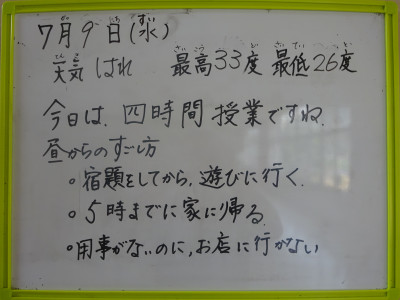 7月9日(水)
天気 はれ 最高33度 最低26度
今日は、四時間授業ですね。
昼からのすごし方
○宿題をしてから、遊びに行く。
○5時までに家に帰る。
○用事がないのに、お店に行かない